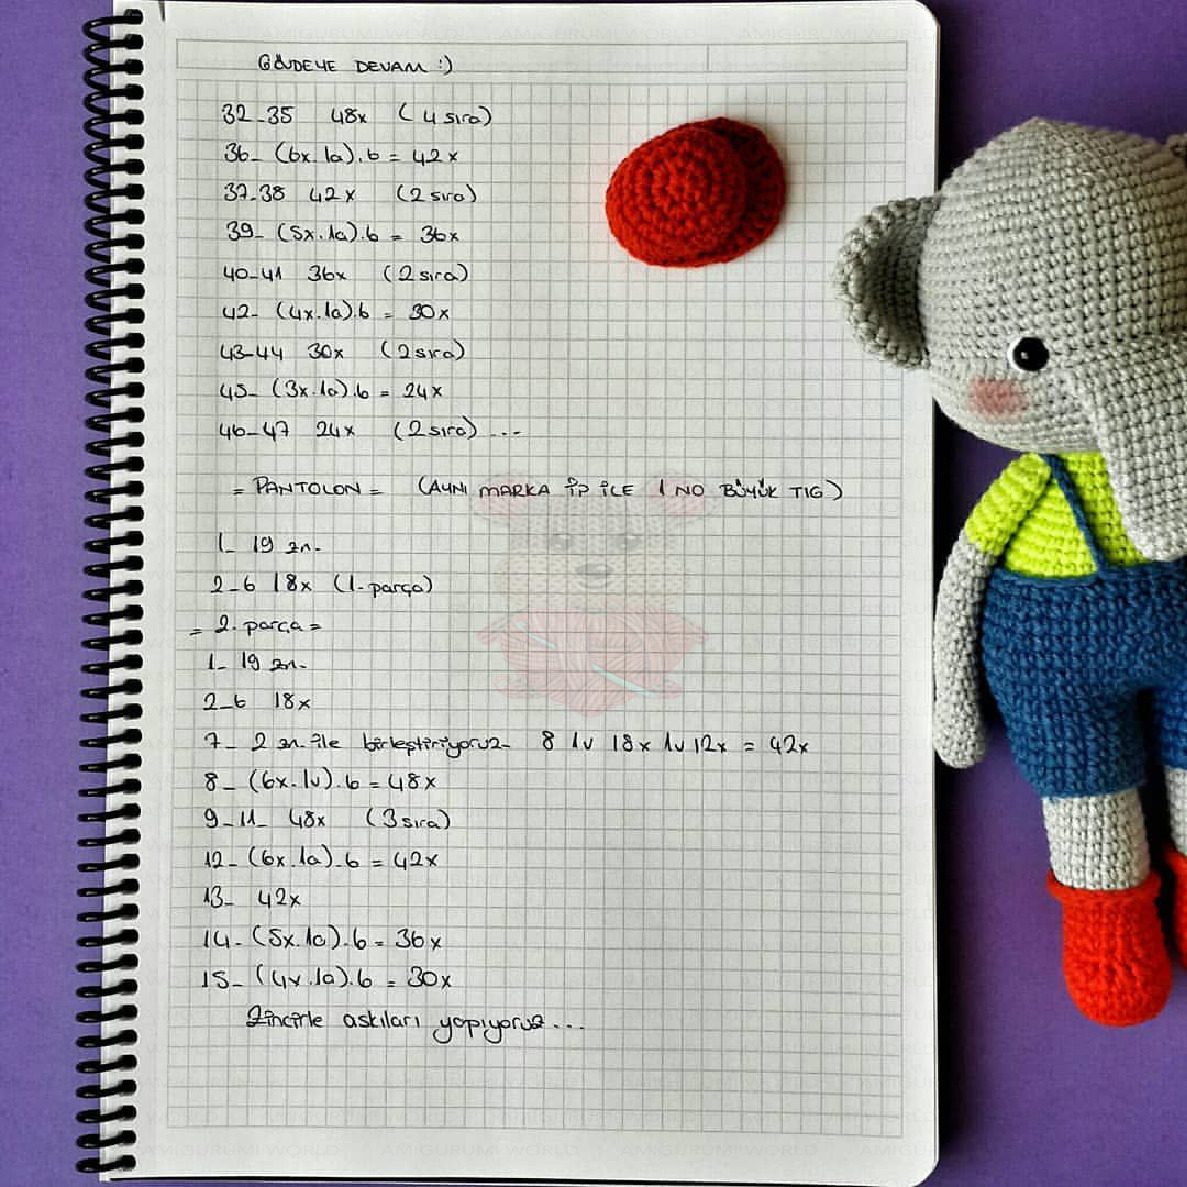 GÖVDEYE DEVAM :)
32-35 48x (4 sıra)
36- (6x.1a).6 = 42x
37-38 42x (2 sıra)
39- (5x.1a).6 = 36x
40-41 36x (2 sıra)
42- (4x.1a).6 = 30x
43-44 30x (2 sıra)
45- (3x.1a).6 = 24x
46-47 24x (2 sıra) ...
= PANTOLON = (AYNI MARKA İP İLE 1 NO BÜYÜK TIG)
1- 19 zn.
2-6 18x (1. parça)
= 2. parça =
1- 19 zn.
2-6 18x
7- 2 zn. ile birleştiriyoruz- 8 1v 18x 1v 12x = 42x
8- (6x.1v).6 = 48x
9-11- 48x (3 sıra)
12- (6x.1a).6 = 42x
13- 42x
14- (5x.1a).6 = 36x
15- (4x.1a).6 = 30x
Zincirle askıları yapıyoruz...
AMIGURUMI WORLD AMIGURUMI WORLD AMIGURUMI WORLD